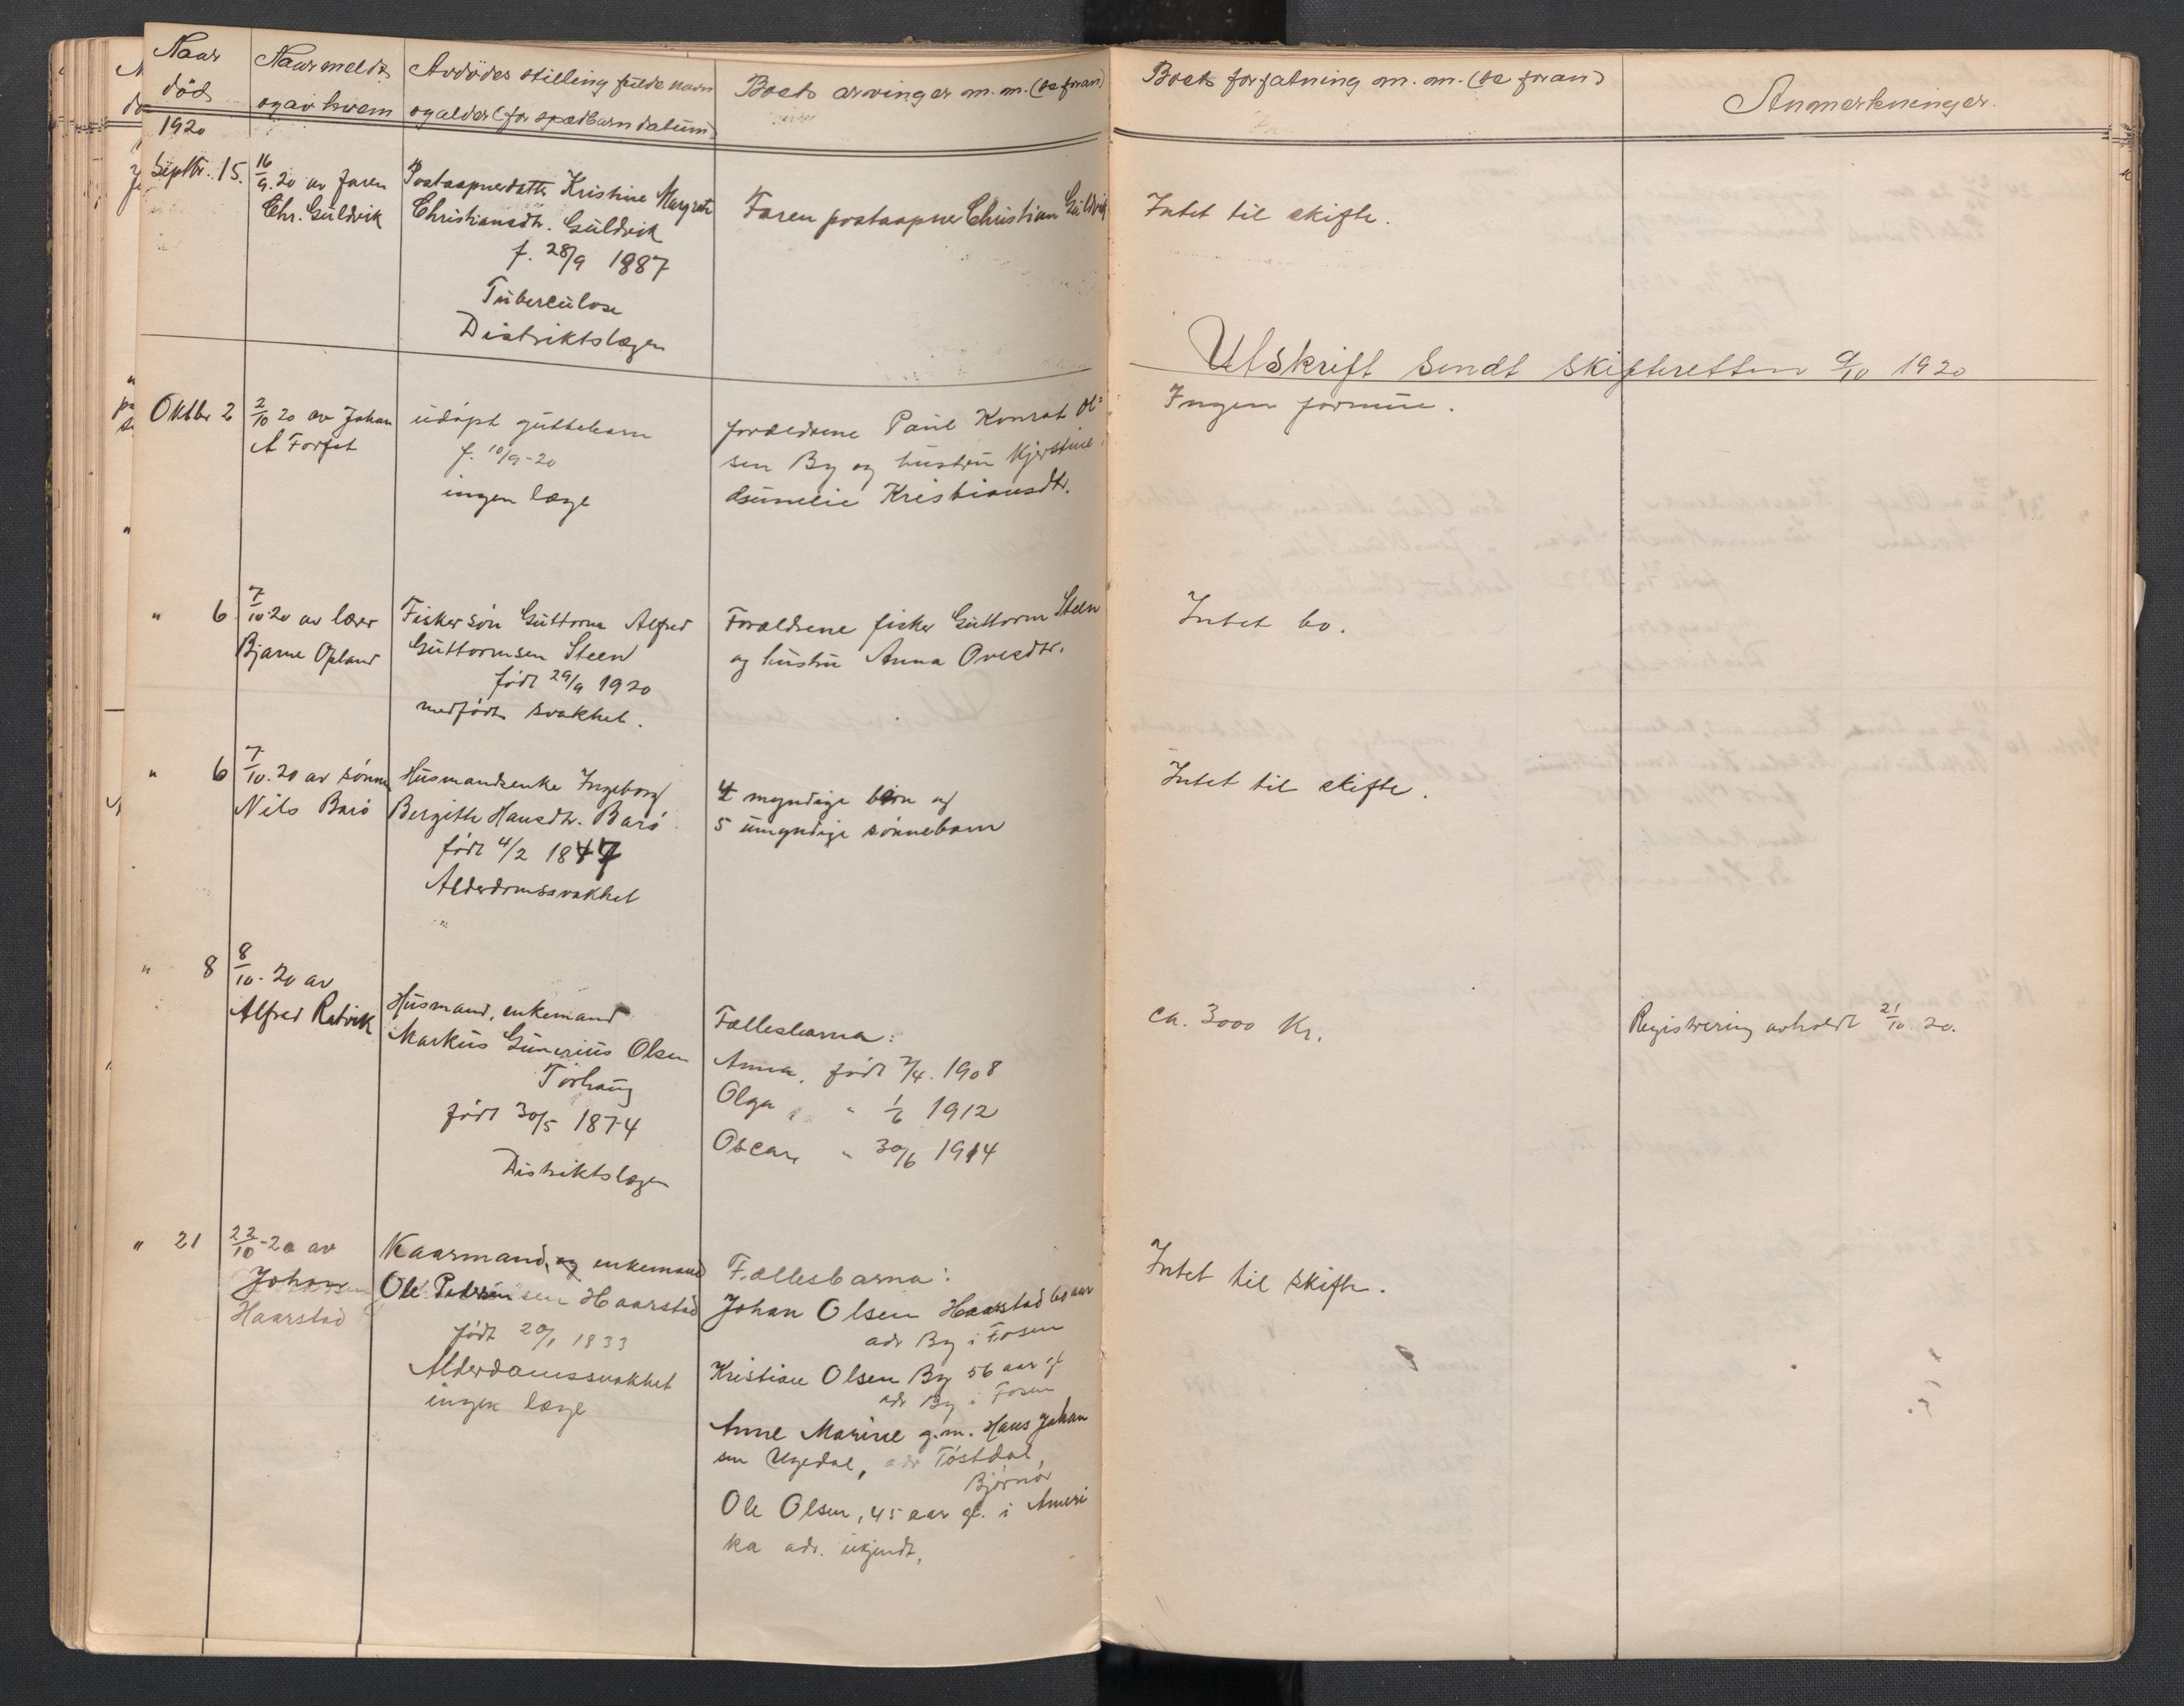 Naar
död
1920
Naar meldt
og av hvem
Avdödes stilling fulde navn
og alder (for spædbarn datum)
Boets arvinger m. m. (se foran)
Boets forfatning m. m. (se foran)
Anmerkninger.
Septbr. 15.
16/9. 20 av faren
Chr. Guldvik
Postaapnerdatter Kristine Margrete
Christiansdtr. Guldvik
f. 28/9 1887
Tuberculose
Distriktslægen
Faren postaapner Christian Guldvik
Intet til skifte.
Utskrift sendt skifteretten 9/10 1920
Oktbr 2
2/10 20 av Johan
A Forfot
udöpt guttebarn
f. 10/9-20
ingen læge
forældrene Paul Konrat Ol=
sen By og hustru Kjerstine
Kristiansdtr.
Ingen formue.
" 6
7/10-20 av lærer
Bjarne Opland
Fisker sön Guttorm Alfred
Guttormsen Steen
född 29/9 1920
medfödt svakhet.
Forældrene fisker Guttorm Steen
og hustru Anna Ovesdtr.
Intet bo.
" 6
7/10. 20 av sönnen
Nils Barö
Husmandsenke Ingeborg
Bergitte Hansdtr. Barö
född 4/2 1847
Alderdomssvakhet
4 myndige börn og
5 umyndige sönnebarn
Intet til skifte.
" 8
8/10. 20 av
Alfred Ratvik
Husmand, enkemand
Markus Gunerius Olsen
Törhaug
född 30/5 1874
Distriktslægen
Fællesbarna:
Anna, född 2/4. 1908
Olga, " 1/6 1912
Oscar, " 30/6 1914
ca. 3000 Kr.
Registrering avholdt 21/10. 20.
" 21
22/10-20 av
Johansen
Haarstad
Kaarmand, og enkemand
Ole Petersen Haarstad
född 20/1 1833
Alderdomssvakhet
ingen læge
Fællesbarna:
Johan Olsen Haarstad 60 aar
adr By i Fosen
Kristian Olsen By 56 aar gl
adr By i Fosen
Anne Marine g.m. Hans Johan
sen Ugedal, adr Töstdal,
Björnör
Ole Olsen, 45 aar gl. i Ameri
ka adr. ukjendt.
Intet til skifte.